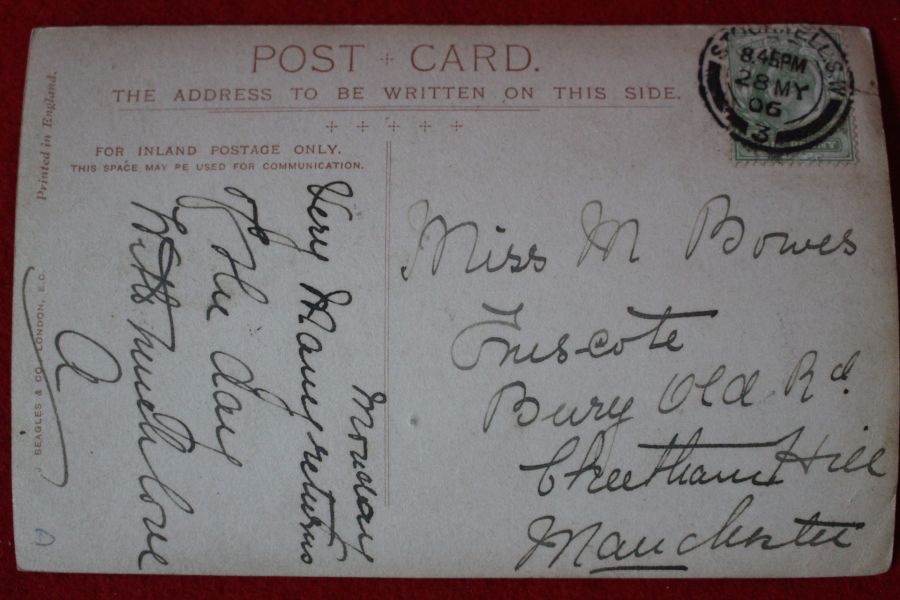 POST CARD.
THE ADDRESS TO BE WRITTEN ON THIS SIDE.
FOR INLAND POSTAGE ONLY.
THIS SPACE MAY BE USED FOR COMMUNICATION.
Printed in England.
J. BEAGLES & CO., LONDON, E.C.
8.45PM
28 MY
06
3
Monday
Very Many returns
of the day
With much love
A
Miss M Bowes
Bury Old Rd
Cheetham Hill
Manchester